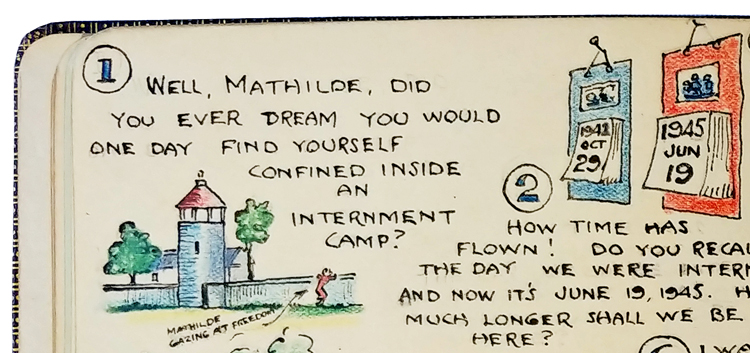 1
WELL, MATHILDE, DID
YOU EVER DREAM YOU WOULD
ONE DAY FIND YOURSELF
CONFINED INSIDE
AN
INTERNMENT
CAMP?
MATHILDE
GAZING AT FREEDOM
OCT
29
1945
JUN
19
2
HOW TIME HAS
FLOWN! DO YOU RECAL
THE DAY WE WERE INTERN
AND NOW IT'S JUNE 19, 1945. H
MUCH LONGER SHALL WE BE
HERE?
I WA